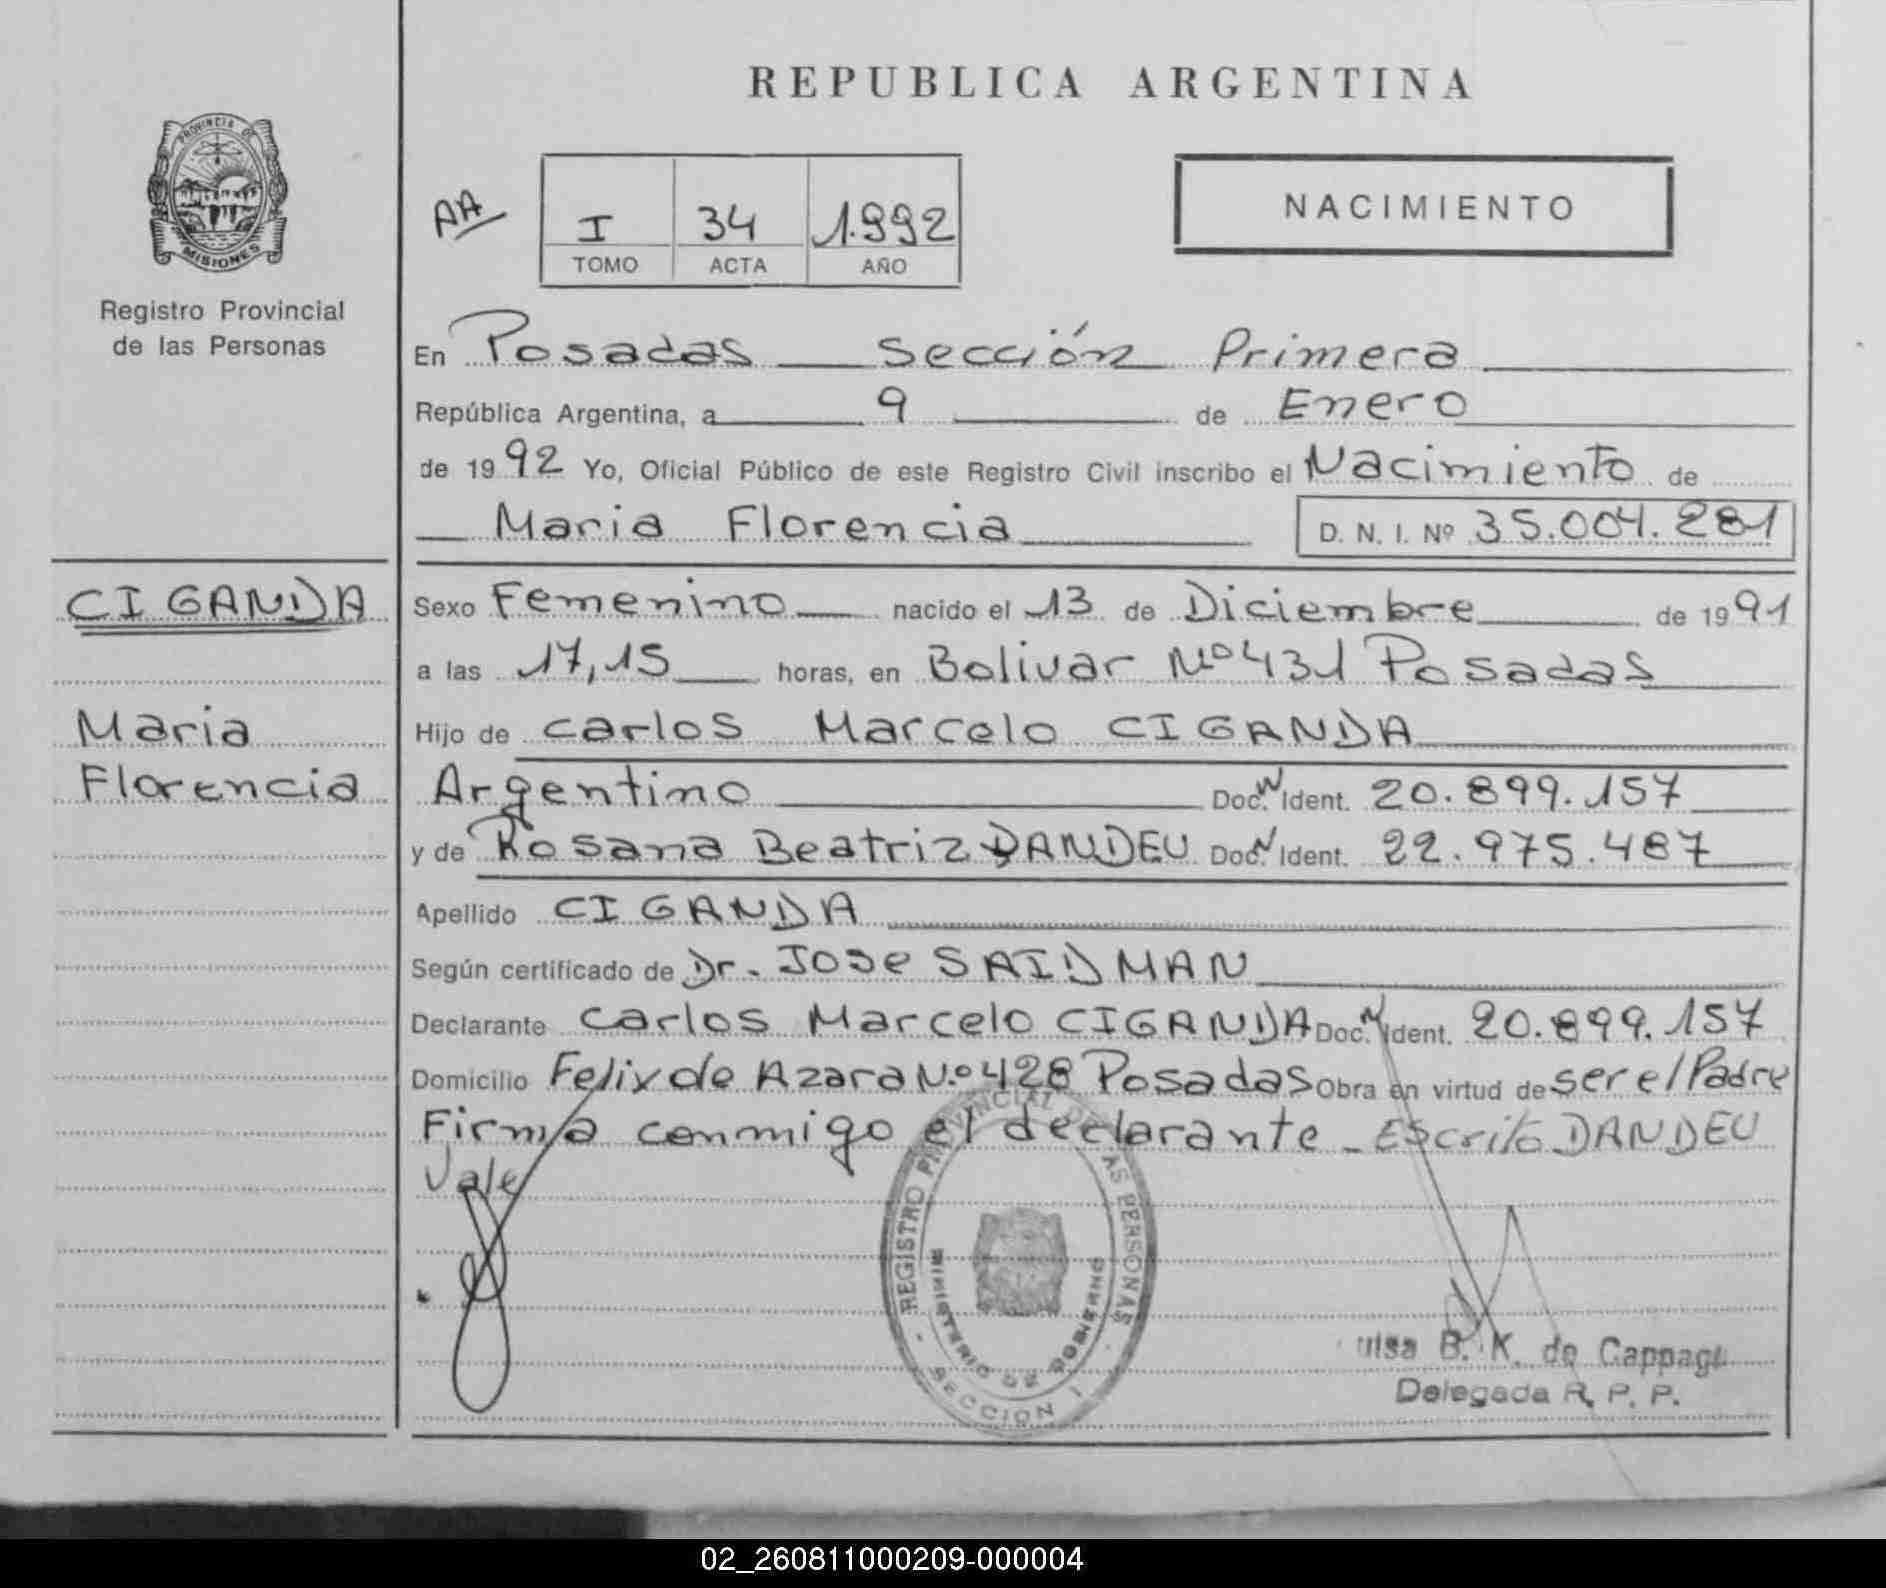 REPUBLICA ARGENTINA
PROVINCIA DE
MISIONES
Registro Provincial
de las Personas
AA
I 34 1.992
TOMO ACTA AÑO
NACIMIENTO
En Posadas Sección Primera
República Argentina, a 9 de Enero
de 1992 Yo, Oficial Público de este Registro Civil inscribo el Nacimiento de
Maria Florencia D. N. I. Nº 35.004.281
CIGANDA
Maria
Florencia
Sexo Femenino nacido el 13 de Diciembre de 1991
a las 17,15 horas, en Bolivar Nº 431 Posadas
Hijo de Carlos Marcelo CIGANDA
Argentino Doc. N Ident. 20.899.157
y de Rosana Beatriz DANDEU Doc. N Ident. 22.975.487
Apellido CIGANDA
Según certificado de Dr. Jose SAIDMAN
Declarante Carlos Marcelo CIGANDA Doc. N Ident. 20.899.157
Domicilio Felix de Azara N.º 428 Posadas Obra en virtud de ser el Padre
Firma conmigo el declarante - Escrito DANDEU
Vale
REGISTRO PROVINCIAL DE LAS PERSONAS
MINISTERIO DE GOBIERNO
SECCION I
B. K. de
Delegada R. P. P.
02_260811000209-000004